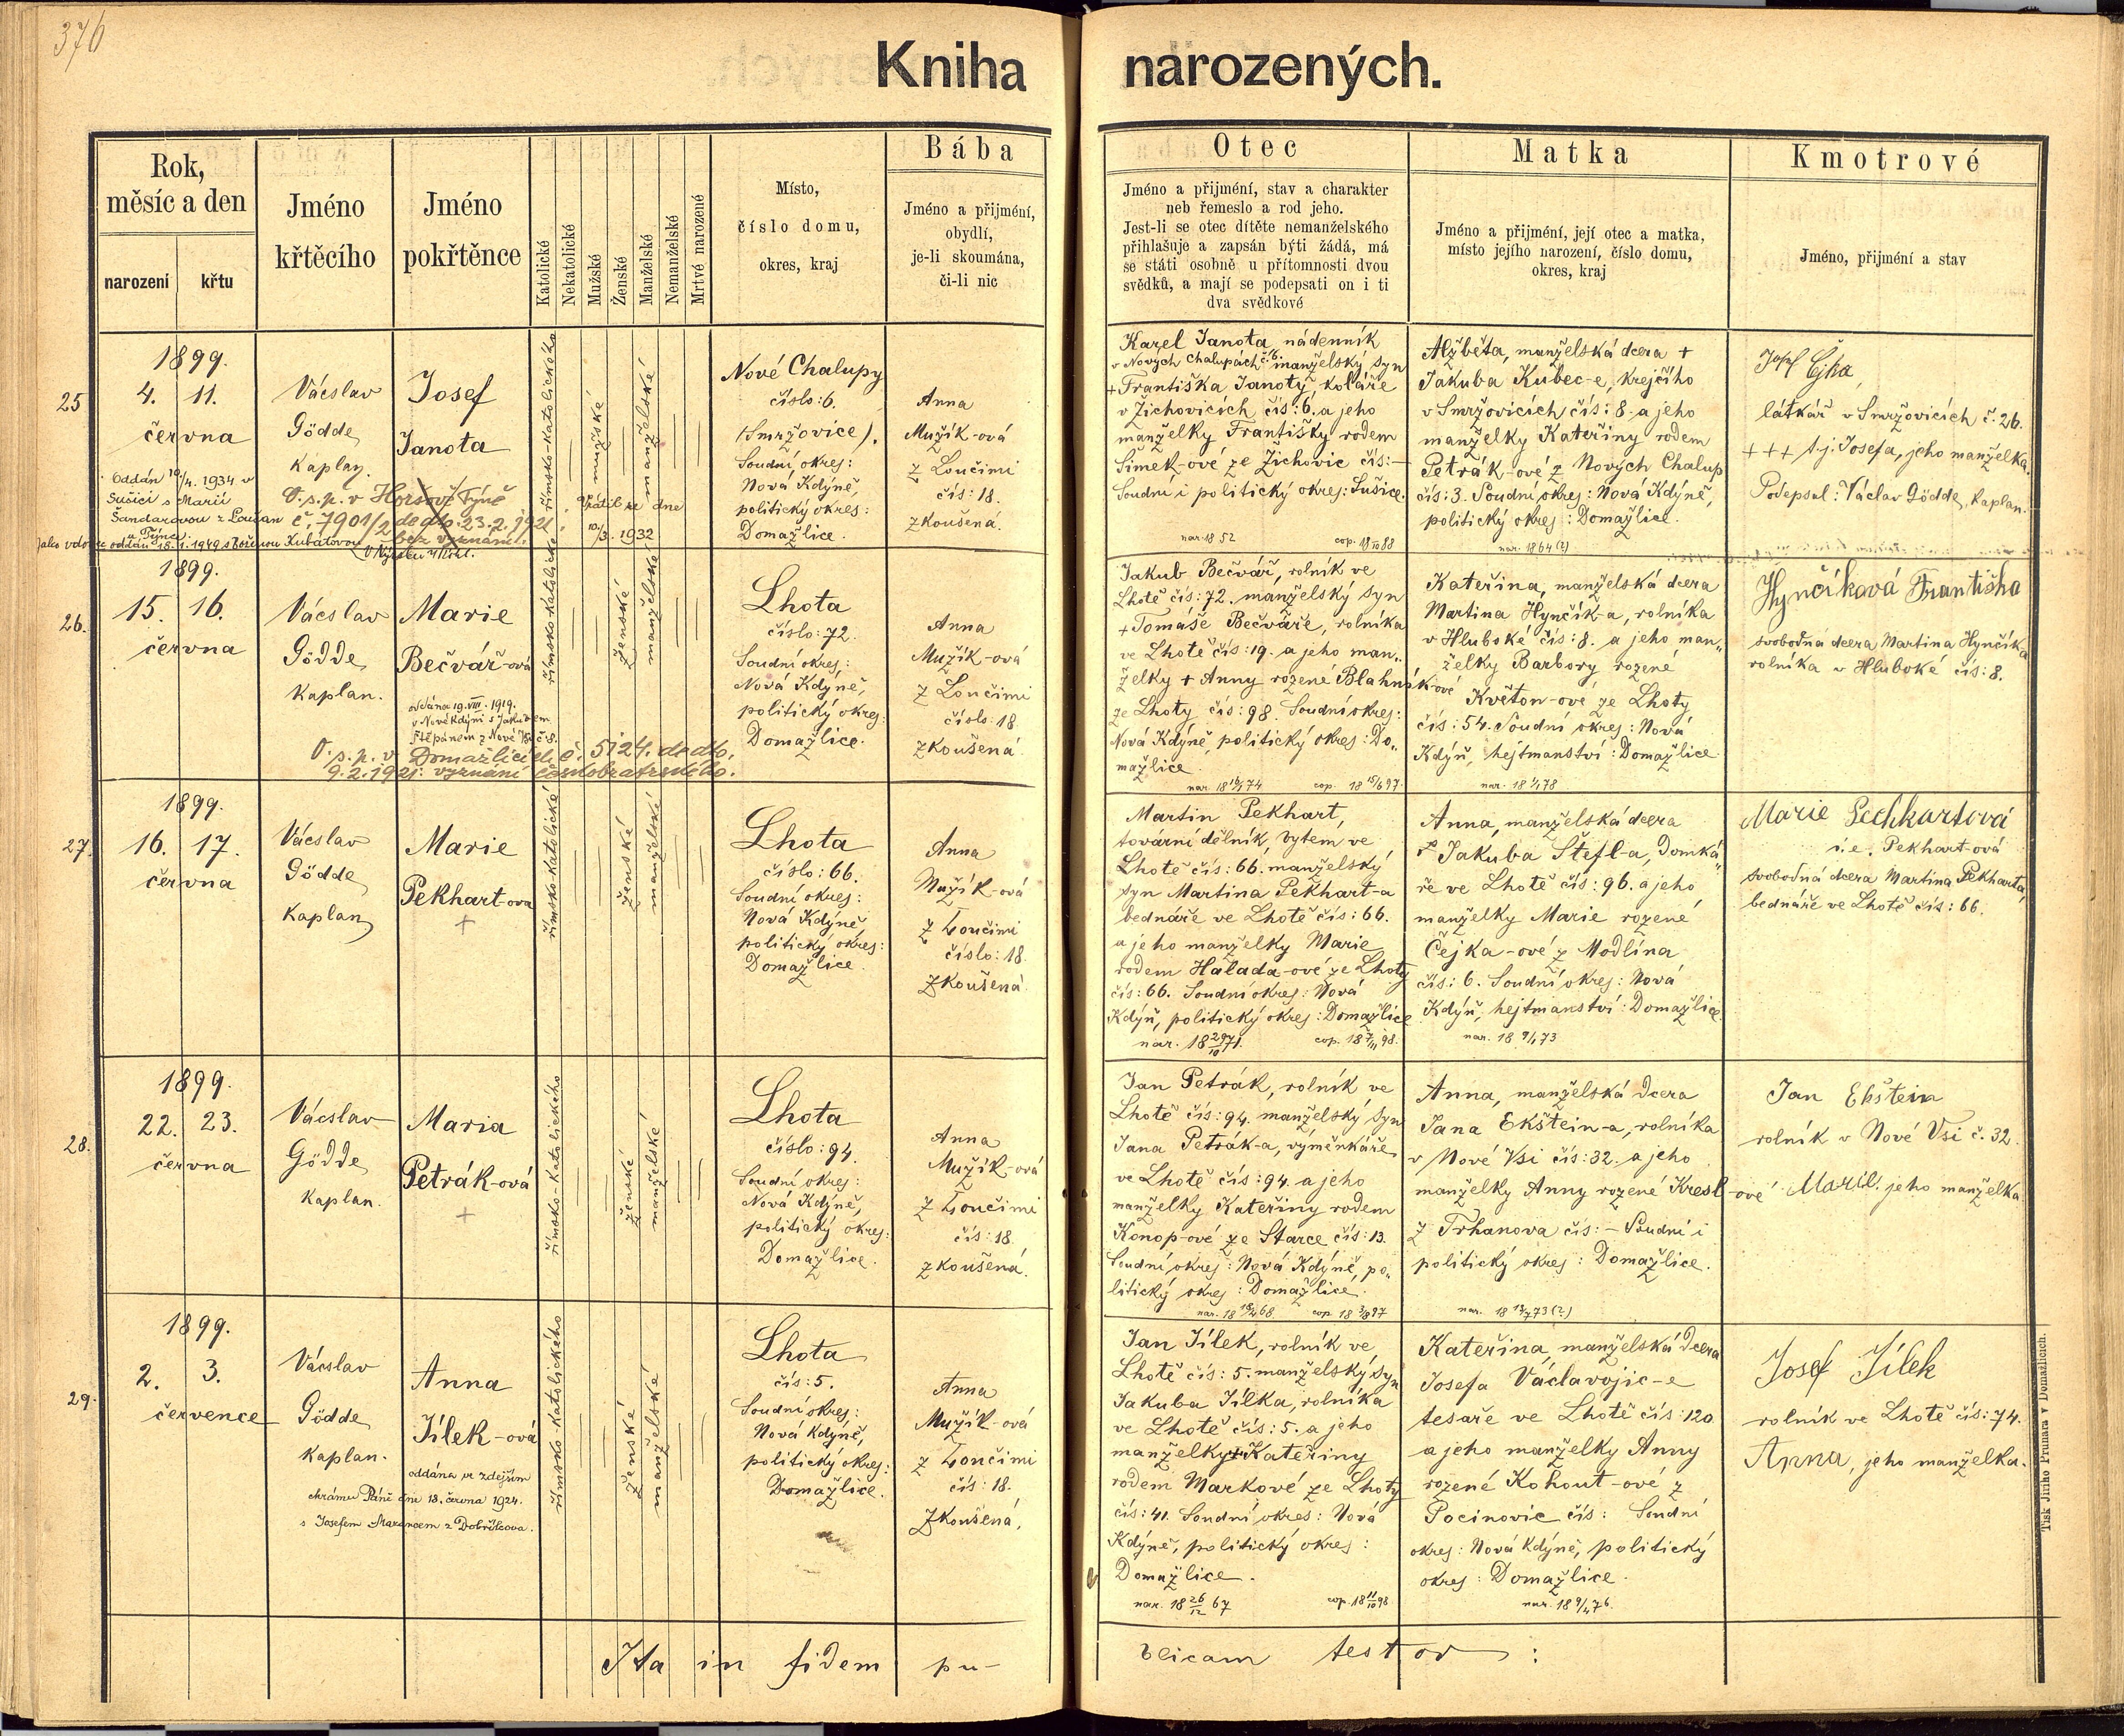 376
Kniha narozených.
Rok, měsíc a den
narození
křtu
Jméno křtěcího
Jméno pokřtěnce
Katolické
Nekatolické
Mužské
Ženské
Manželské
Nemanželské
Mrtvé narozené
Místo,
číslo domu,
okres, kraj
Bába
Jméno a přijmění,
obydlí,
je-li skoumána,
či-li nic
Otec
Jméno a přijmění, stav a charakter
neb řemeslo a rod jeho.
Jest-li se otec dítěte nemanželského
přihlašuje a zapsán býti žádá, má
se státi osobně u přítomnosti dvou
svědků, a mají se podepsati on i ti
dva svědkové
Matka
Jméno a přijmění, její otec a matka,
místo jejího narození, číslo domu,
okres, kraj
Kmotrové
Jméno, přijmění a stav
25
1899.
4. 11.
června
Vácslav
Gödde,
Kaplan.
Josef
Janota
Oddán 10/4. 1934 v
Sušici s Marií
Šandarovou z Loučan
O. s. p. v Horšově Týně
č. 7901/2 de dto: 23. 2. 1921.
bez vyznání.
Vrátil se dne
10./3. 1932
římsko-katolického
mužské
manželské
Nové Chalupy
číslo: 6.
(Smržovice).
Soudní okres:
Nová Kdýně
politický okres:
Domažlice.
Anna
Mužík-ová
z Loučimi
čís: 18.
zkoušená.
Karel Janota, nádenník
v Nových Chalupách č. 6. manželský syn
+ Františka Janoty, koláře
v Žichovicích čís: 6. a jeho
manželky Františky rodem
Šimek-ové ze Žichovic čís: —
Soudní i politický okres: Sušice.
nar. 1852 cop. 18 /10 88
Alžběta, manželská dcera +
Jakuba Kubec-e, krejčího
v Smržovicích čís: 8. a jeho
manželky Kateřiny rodem
Petrák-ové z Nových Chalup
čís: 3. Soudní okres: Nová Kdýně,
politický okres: Domažlice.
nar. 1864 (?)
Josef
látkář v Smržovicích č. 26.
+++ t. j. Josefa, jeho manželka.
Podepsal: Václav Gödde, Kaplan.
26.
1899.
15. 16.
června
Vácslav
Gödde,
Kaplan.
Marie
Bečvář-ová
oddána 19. VIII. 1919.
v Nové Kdýni s Jakubem
Štěpánem z Nové
O. s. p. v Domažlicích č. 5124. de dto.
9. 2. 1921: vyznání českobratrského.
římsko-katolické
ženské
manželské
Lhota
číslo: 72.
Soudní okres:
Nová Kdýně,
politický okres:
Domažlice.
Anna
Mužík-ová
z Loučimi
číslo: 18
zkoušená
Jakub Bečvář, rolník ve
Lhotě čís: 72. manželský syn
+ Tomáše Bečváře, rolníka
ve Lhotě čís: 19. a jeho man„
želky + Anny rozené Blahník-ové
ze Lhoty čís: 98. Soudní okres:
Nová Kdýně, politický okres: Do„
mažlice.
cop. 18 15/6 97.
Kateřina, manželská dcera
Martina Hynčík-a, rolníka
v Hluboké čís: 8. a jeho man„
želky Barbory rozené
Květon-ové ze Lhoty
čís: 54. Soudní okres: Nová
Kdýň, hejtmanství: Domažlice.
Hynčíková Františka
svobodná dcera Martina Hynčíka
rolníka v Hluboké čís: 8.
27.
1899.
16. 17.
června
Vácslav
Gödde
Kaplan
Marie
Pekhart-ova
+
římsko-katolické
ženské
manželské
Lhota
číslo: 66.
Soudní okres:
Nová Kdýně,
politický okres:
Domažlice.
Anna
Mužík-ová
z Loučimi
číslo: 18.
zkoušená.
Martin Pekhart,
tovární dělník, bytem ve
Lhotě čís: 66. manželský
syn Martina Pekhart-a
bednáře ve Lhotě čís: 66.
a jeho manželky Marie
rodem Halada-ové ze Lhoty
čís: 66. Soudní okres: Nová
Kdýň, politický okres: Domažlice
nar. 18 29/10 71. cop. 18 7/11 98.
Anna, manželská dcera
Jakuba Štefl-a, Domká„
ře ve Lhotě čís: 96. a jeho
manželky Marie rozené
Čejka-ové z Modlína
čís: 6. Soudní okres: Nová
Kdýň, hejtmanství: Domažlice.
nar. 18 9/1 73
Marie Pechhartová
i. e. Pekhart-ová
svobodná dcera Martina Pekharta,
bednáře ve Lhotě čís: 66.
28.
1899.
22. 23.
června
Vácslav
Gödde
Kaplan.
Maria
Petrák-ová
+
římsko-katolického
ženské
manželské
Lhota
číslo: 94.
Soudní okres:
Nová Kdýně,
politický okres:
Domažlice.
Anna
Mužík-ová
z Loučimi
čís: 18
zkoušená.
Jan Petrák, rolník ve
Lhotě čís: 94. manželský syn
Jana Petrák-a, výměnkáře
ve Lhotě čís: 94. a jeho
manželky Kateřiny rodem
Konop-ové ze Starce čís: 13.
Soudní okres: Nová Kdýně, po„
litický okres: Domažlice.
cop. 18 3/8 97
Anna, manželská Dcera
Jana Ekštein-a, rolníka
v Nové Vsi čís: 32. a jeho
manželky Anny rozené Kresl-ové
z Trhanova čís: — Soudní i
politický okres: Domažlice.
Jan Ekstein
rolník v Nové Vsi č. 32.
Marie. jeho manželka
29.
1899.
2. 3.
července
Vácslav
Gödde
Kaplan.
Anna
Jílek-ová
oddána ve zdejším
chrámu Páně dne 18. června 1924.
s Josefem Marancem z Dobříkova.
římsko-katolického
ženské
manželské
Lhota
čís: 5.
Soudní okres:
Nová Kdýně,
politický okres:
Domažlice.
Anna
Mužík-ová
z Loučimi
čís: 18.
Zkoušená.
Jan Jílek, rolník ve
Lhotě čís: 5. manželský syn
Jakuba Jílka, rolníka
ve Lhotě čís: 5. a jeho
manželky Kateřiny
rodem Markové ze Lhoty
čís: 41. Soudní okres: Nová
Kdýně, politický okres:
Domažlice.
nar. 18 26/12 67 cop. 18 11/10 98
Kateřina, manželská Dcera
Josefa Václavojic-e
tesaře ve Lhotě čís: 120
a jeho manželky Anny
rozené Kohout-ové z
Pocinovic čís: Soudní
okres: Nová Kdýně, politický
okres: Domažlice.
nar. 18 9/4 76.
Josef Jílek
rolník ve Lhotě čís: 74.
Anna, jeho manželka.
Ita in fidem pu-
blicam testor :
Tisk Jiřího Prunara v Domažlicích.